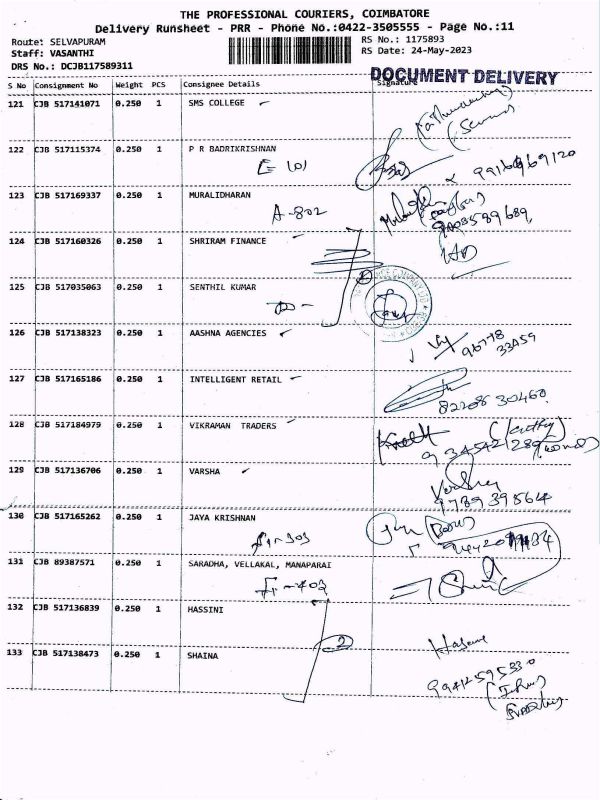 THE PROFESSIONAL COURIERS, COIMBATORE
Delivery Runsheet - PRR - Phone No.:0422-3505555 - Page No.:11
Route: SELVAPURAM RS No.: 1175893
Staff: VASANTHI RS Date: 24-May-2023
DRS No.: DCJB117589311
DOCUMENT DELIVERY
S No Consignment No Weight PCS Consignee Details Signature
121 CJB 517141071 0.250 1 SMS COLLEGE
122 CJB 517115374 0.250 1 P R BADRIKRISHNAN
E 101
123 CJB 517169337 0.250 1 MURALIDHARAN
A-802
124 CJB 517160326 0.250 1 SHRIRAM FINANCE
125 CJB 517035063 0.250 1 SENTHIL KUMAR
126 CJB 517138323 0.250 1 AASHNA AGENCIES
96778
33459
127 CJB 517165186 0.250 1 INTELLIGENT RETAIL
8220830460
128 CJB 517184979 0.250 1 VIKRAMAN TRADERS
129 CJB 517136706 0.250 1 VARSHA
Varsha
9789398564
130 CJB 517165262 0.250 1 JAYA KRISHNAN
131 CJB 89387571 0.250 1 SARADHA, VELLAKAL, MANAPARAI
132 CJB 517136839 0.250 1 HASSINI
2
133 CJB 517138473 0.250 1 SHAINA